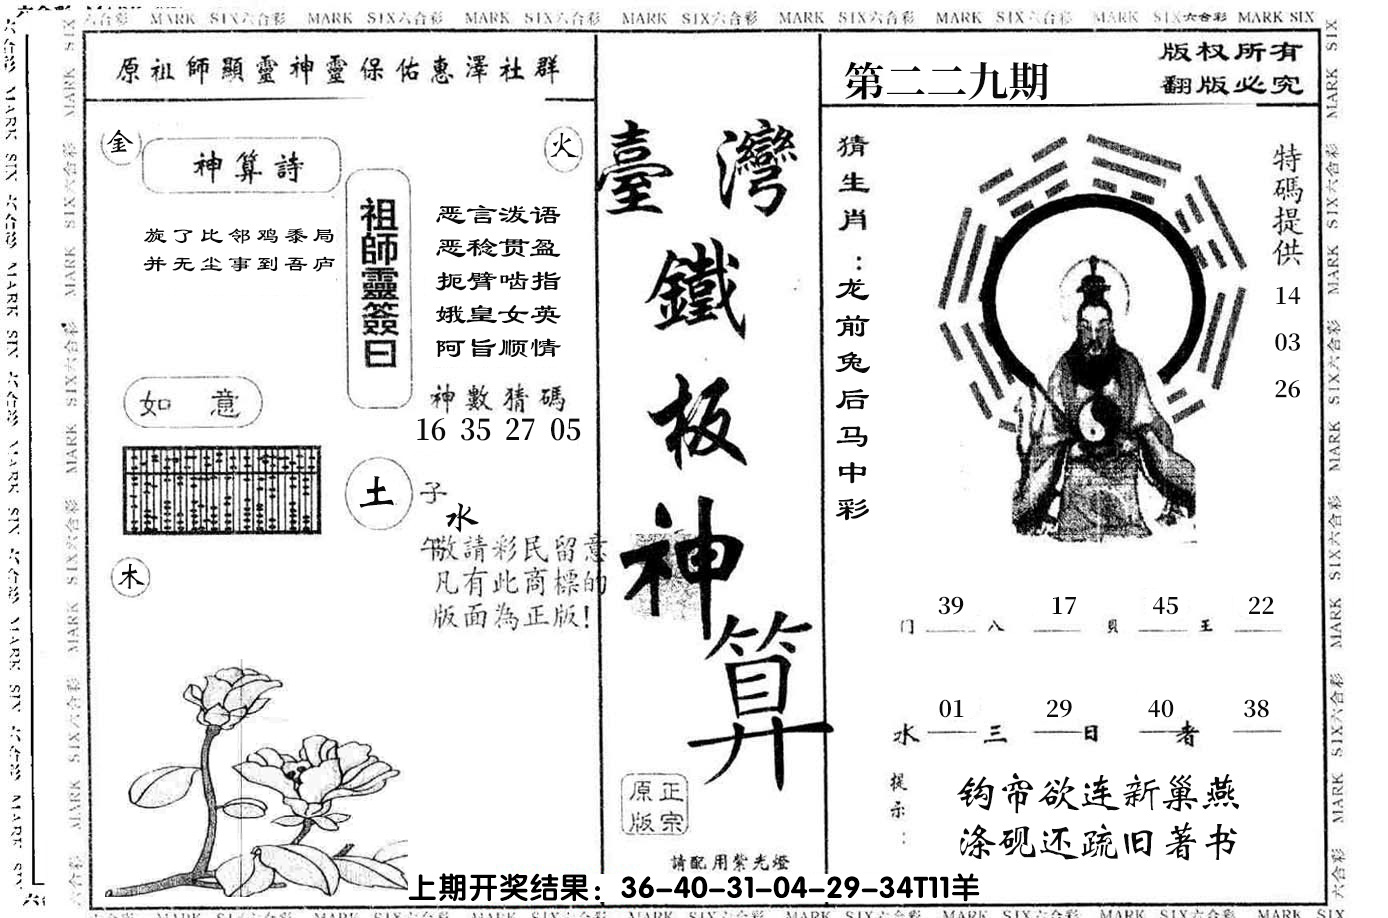 MARK SIX六合彩 MARK SIX六合彩 MARK SIX六合彩 MARK SIX六合彩 MARK SIX六合彩 MARK SIX六合彩 MARK SIX六合彩 MARK SIX
原祖師顯靈神靈保佑惠澤社群
金
神算詩
火
旋了比邻鸡黍局
并无尘事到吾庐
祖師靈簽曰
恶言泼语
恶稔贯盈
扼臂啮指
娥皇女英
阿旨顺情
神數猜碼
16 35 27 05
如意
土
子
水
午
木
敬請彩民留意
凡有此商標的
版面為正版!
臺灣
鐵
板
神
算
正宗
原版
請配用紫光燈
第二二九期
版权所有
翻版必究
猜生肖:龙前兔后马中彩
特碼提供
14
03
26
门 39 八 17 貝 45 王 22
水 01 三 29 日 40 者 38
提示:
钩帘欲连新巢燕
涤砚还疏旧著书
上期开奖结果：36-40-31-04-29-34T11羊